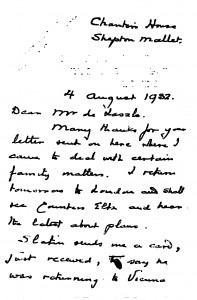 Chantry House
Shepton Mallet.
4 August 1932.
Dear Mr de Lasala.
Many thanks for your
letter sent on here where I
came to deal with certain
family matters. I return
tomorrow to London and shall
see Countess Elte and hear
the latest about plans.
Slatin sends me a card,
just received, to say he
was returning to Vienna